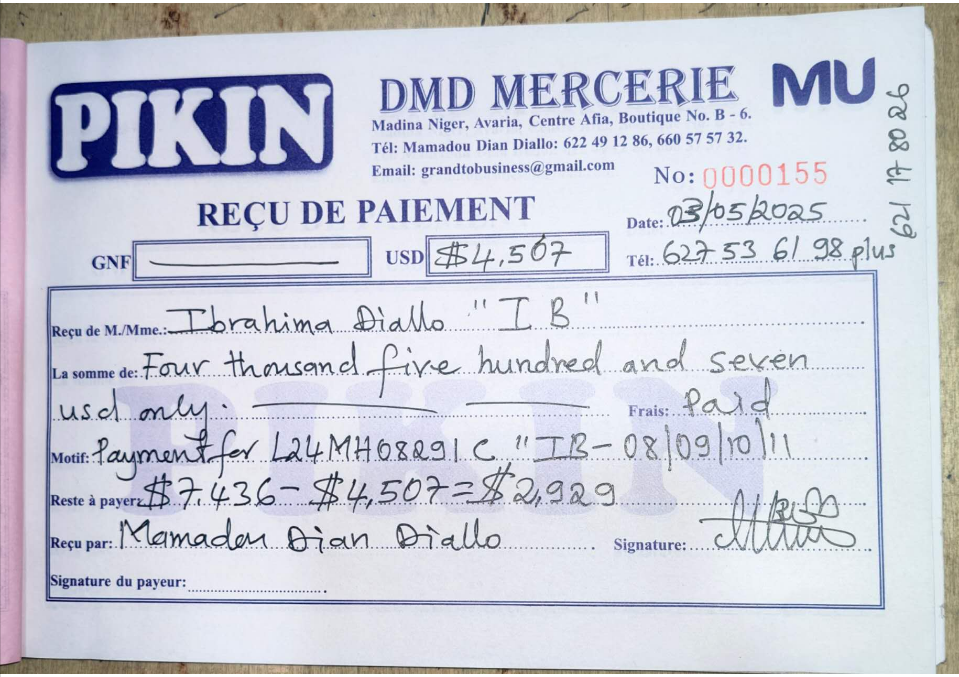 PIKIN
DMD MERCERIE
MU
Madina Niger, Avaria, Centre Afia, Boutique No. B - 6.
Tél: Mamadou Dian Diallo: 622 49 12 86, 660 57 57 32.
Email: grandtobusiness@gmail.com
No: 0000155
621 17 80 26
REÇU DE PAIEMENT
Date: 03/05/2025
GNF
USD $4,507
Tél: 627 53 61 98 plus
Reçu de M./Mme.: Ibrahima Diallo "I B"
La somme de: Four thousand five hundred and seven
usd only.
Frais: Paid
Motif: Payment for L24MH08291C "IB-08/09/10/11
Reste à payer: $7.436-$4,507=$2,929
Reçu par: Mamadou Dian Diallo
Signature:
Signature du payeur:
PIKIN